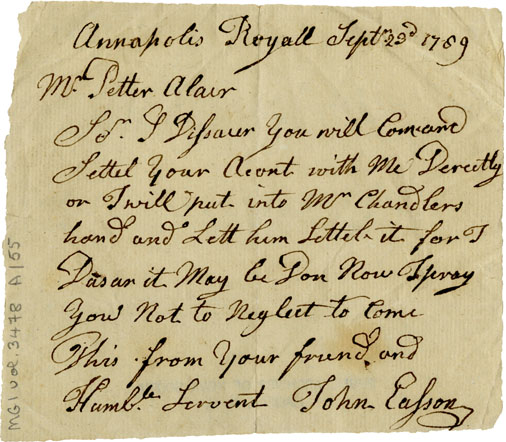 Annapolis Royall Septr 23d 1789
Mr. Petter Alair
Sr. I Dissauer You will Com and
Settel Your Acont with Me Derectly
or I will put into Mr Chandlers
hand and Lett him Settel it for I
Dasar it May be Don Now I pray
You Not to Neglect to Come
This from Your friend and
Humble Servent John Easson
MG1 vol. 3478 A/55